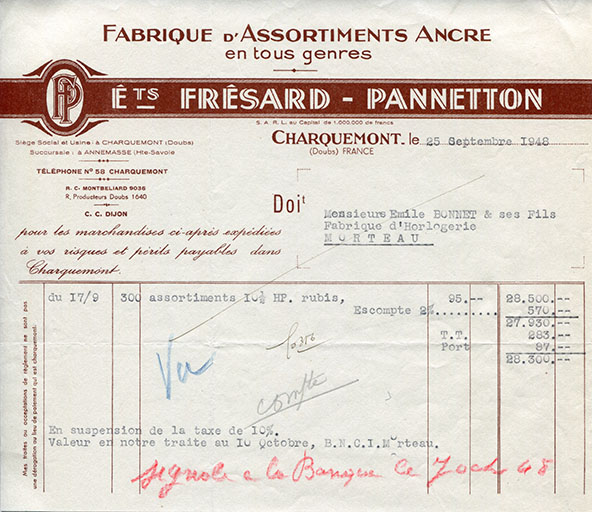 FABRIQUE D'ASSORTIMENTS ANCRE
en tous genres
FP
ÊTS FRÊSARD - PANNETTON
S. A. R. L. au Capital de 1.000.000 de francs
Siège Social et Usine : à CHARQUEMONT (Doubs)
Succursale : à ANNEMASSE (Hte-Savoie
CHARQUEMONT. le 25 Septembre 1948
(Doubs) FRANCE
TÉLÉPHONE N° 58 CHARQUEMONT
R. C. MONTBELIARD 9036
R. Producteurs Doubs 1640
C. C. DIJON
Doit
Monsieurs Emile BONNET & ses Fils
Fabrique d'Horlogerie
MORTEAU
pour les marchandises ci-après expédiées
à vos risques et périls payables dans
Charquemont.
du 17/9 300 assortiments 10½ HP. rubis, 95.-- 28.500.--
Escompte 2%.......... 570.--
27.930.--
T.T. 283.--
Port 87.--
28.300.--
Vu
compte
En suspension de la taxe de 10%.
Valeur en notre traite au 10 Octobre, B.N.C.I. Morteau.
signole a la Banque le 7 oct 48
Mes traites ou acceptations de règlement ne sont pas
une dérogation au lieu de paiement qui est charquemont.